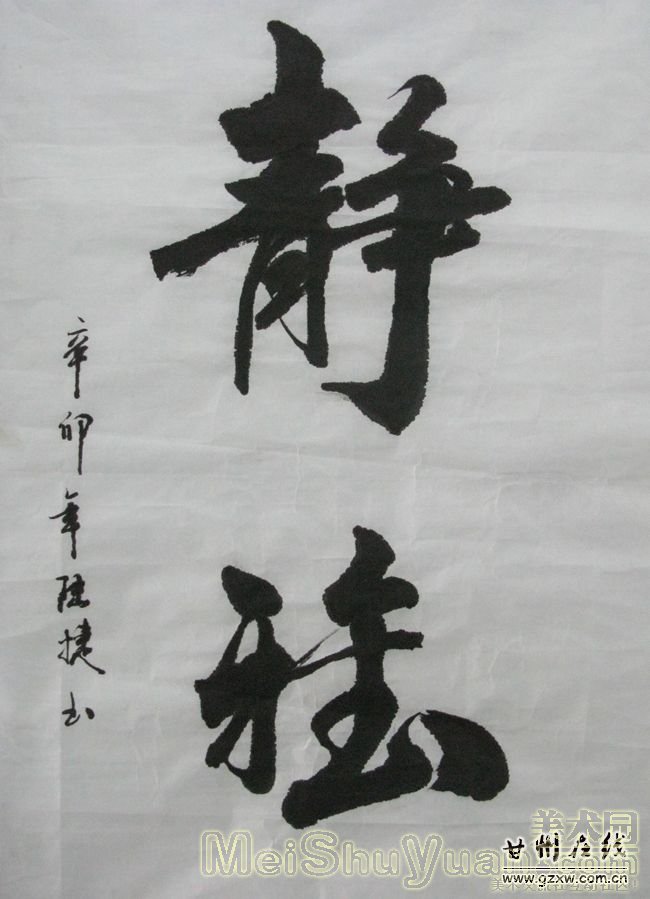 静雅
辛卯年 捷书
美术园
MeiShuYuan.com
甘州在线
www.gzxw.com.cn